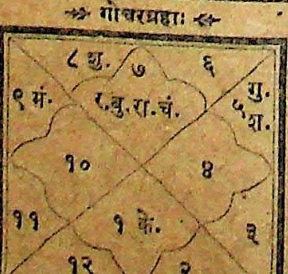 गोचरग्रहाः
८ शु. ७ ६
९ मं. र.बु.रा.चं. गु.
५
श.
१० ४
११ १ के. ३
१२ २